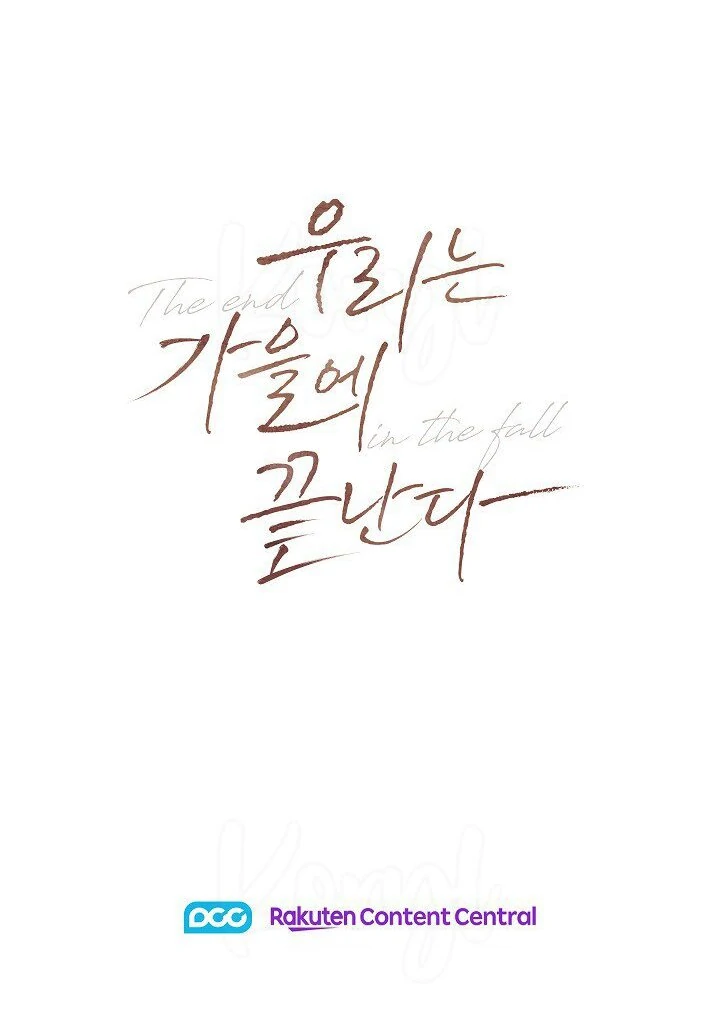 우리는
The end
가을에
in the fall
끝난다
DCC Rakuten Content Central